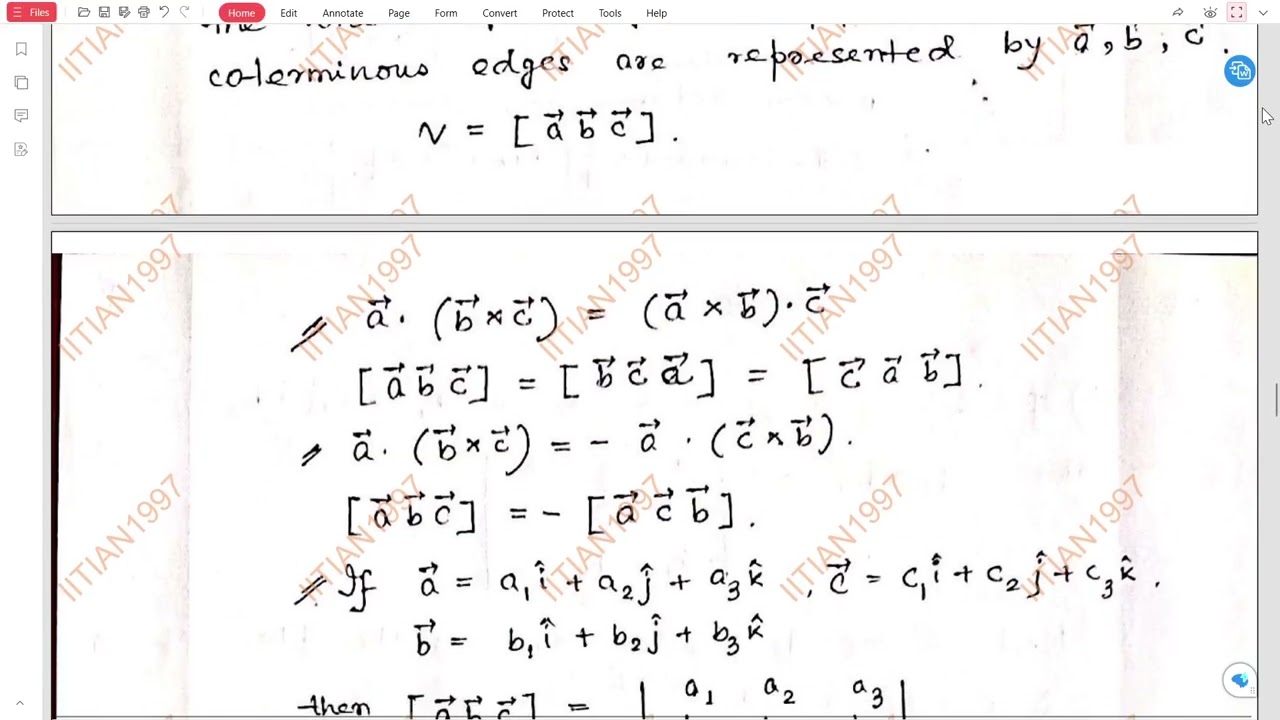 Files Home Edit Annotate Page Form Convert Protect Tools Help
the
coterminous edges are represented by a⃗, b⃗, c⃗.
V = [a⃗ b⃗ c⃗].
a⃗ · (b⃗ × c⃗) = (a⃗ × b⃗) · c⃗
[a⃗ b⃗ c⃗] = [b⃗ c⃗ a⃗] = [c⃗ a⃗ b⃗].
a⃗ · (b⃗ × c⃗) = - a⃗ · (c⃗ × b⃗).
[a⃗ b⃗ c⃗] = - [a⃗ c⃗ b⃗].
If a⃗ = a₁î + a₂ĵ + a₃k̂, c⃗ = c₁î + c₂ĵ + c₃k̂.
b⃗ = b₁î + b₂ĵ + b₃k̂
then [a⃗ b⃗ c⃗] = | a₁ a₂ a₃ |
IITIAN1997